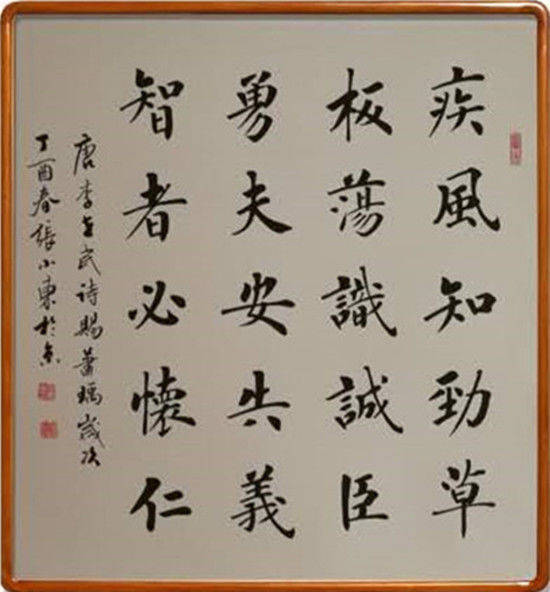 疾風知勁草
板蕩識誠臣
勇夫安共義
智者必懷仁
唐李世民诗賜蕭瑀歲次
丁酉春張小東於京